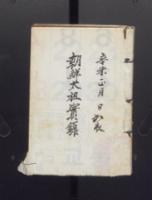 辛未正月 日
朝鮮太祖實錄